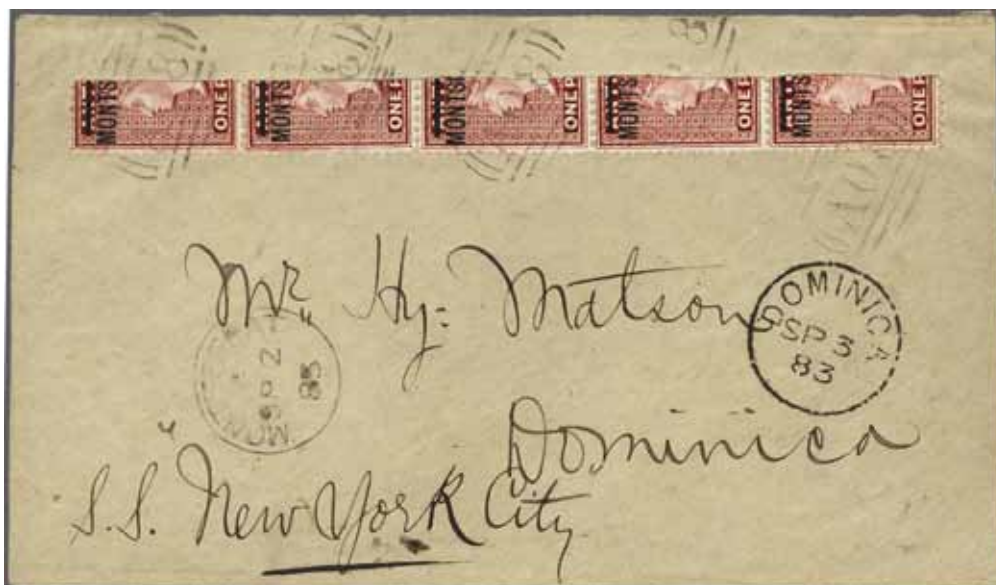 MONTS ONE P
MONTS ONE P
MONTS ONE P
MONTS ONE P
MONTS ONE P
Mr. Hy: Matson
DOMINICA
SP 3
83
MON
SP 2
83
Dominica
S.S. "New York City